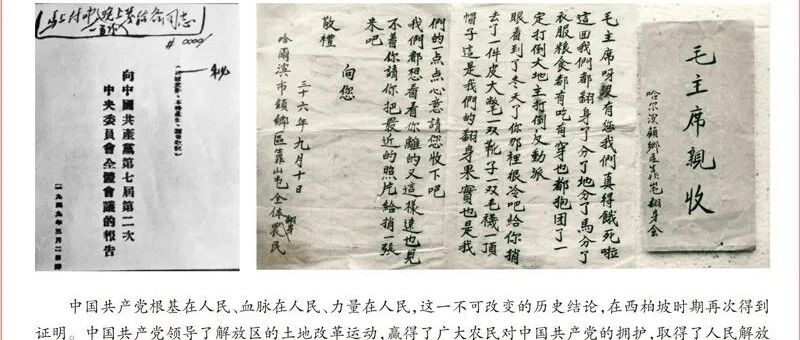 向中國共產黨第七屆第二次
中央委員會全體會議的報告
毛主席親收
哈尔滨顧鄉區靠山屯翻身会
毛主席呀沒有您我們真得餓死啦
這回我們都翻身了分了地分了馬分了
衣服糧食都有吃有穿也都抱团了一
定打倒大地主打倒反動派
眼看到了冬天了你那裡很冷吧給你捎
去了一件皮大氅一双靴子一双毛襪一頂
帽子這是我們的翻身果實也是我
們的一点点心意請您收下吧
我們都想看看你離的又這樣遠也見
不着你請你把最近的照片給捎一張
来吧
向您
敬禮
三十六年九月十日
哈爾濱市顧鄉區靠山屯全体翻身農民
中国共产党根基在人民、血脉在人民、力量在人民,这一不可改变的历史结论,在西柏坡时期再次得到
证明。中国共产党领导了解放区的土地改革运动,赢得了广大农民对中国共产党的拥护,取得了人民解放